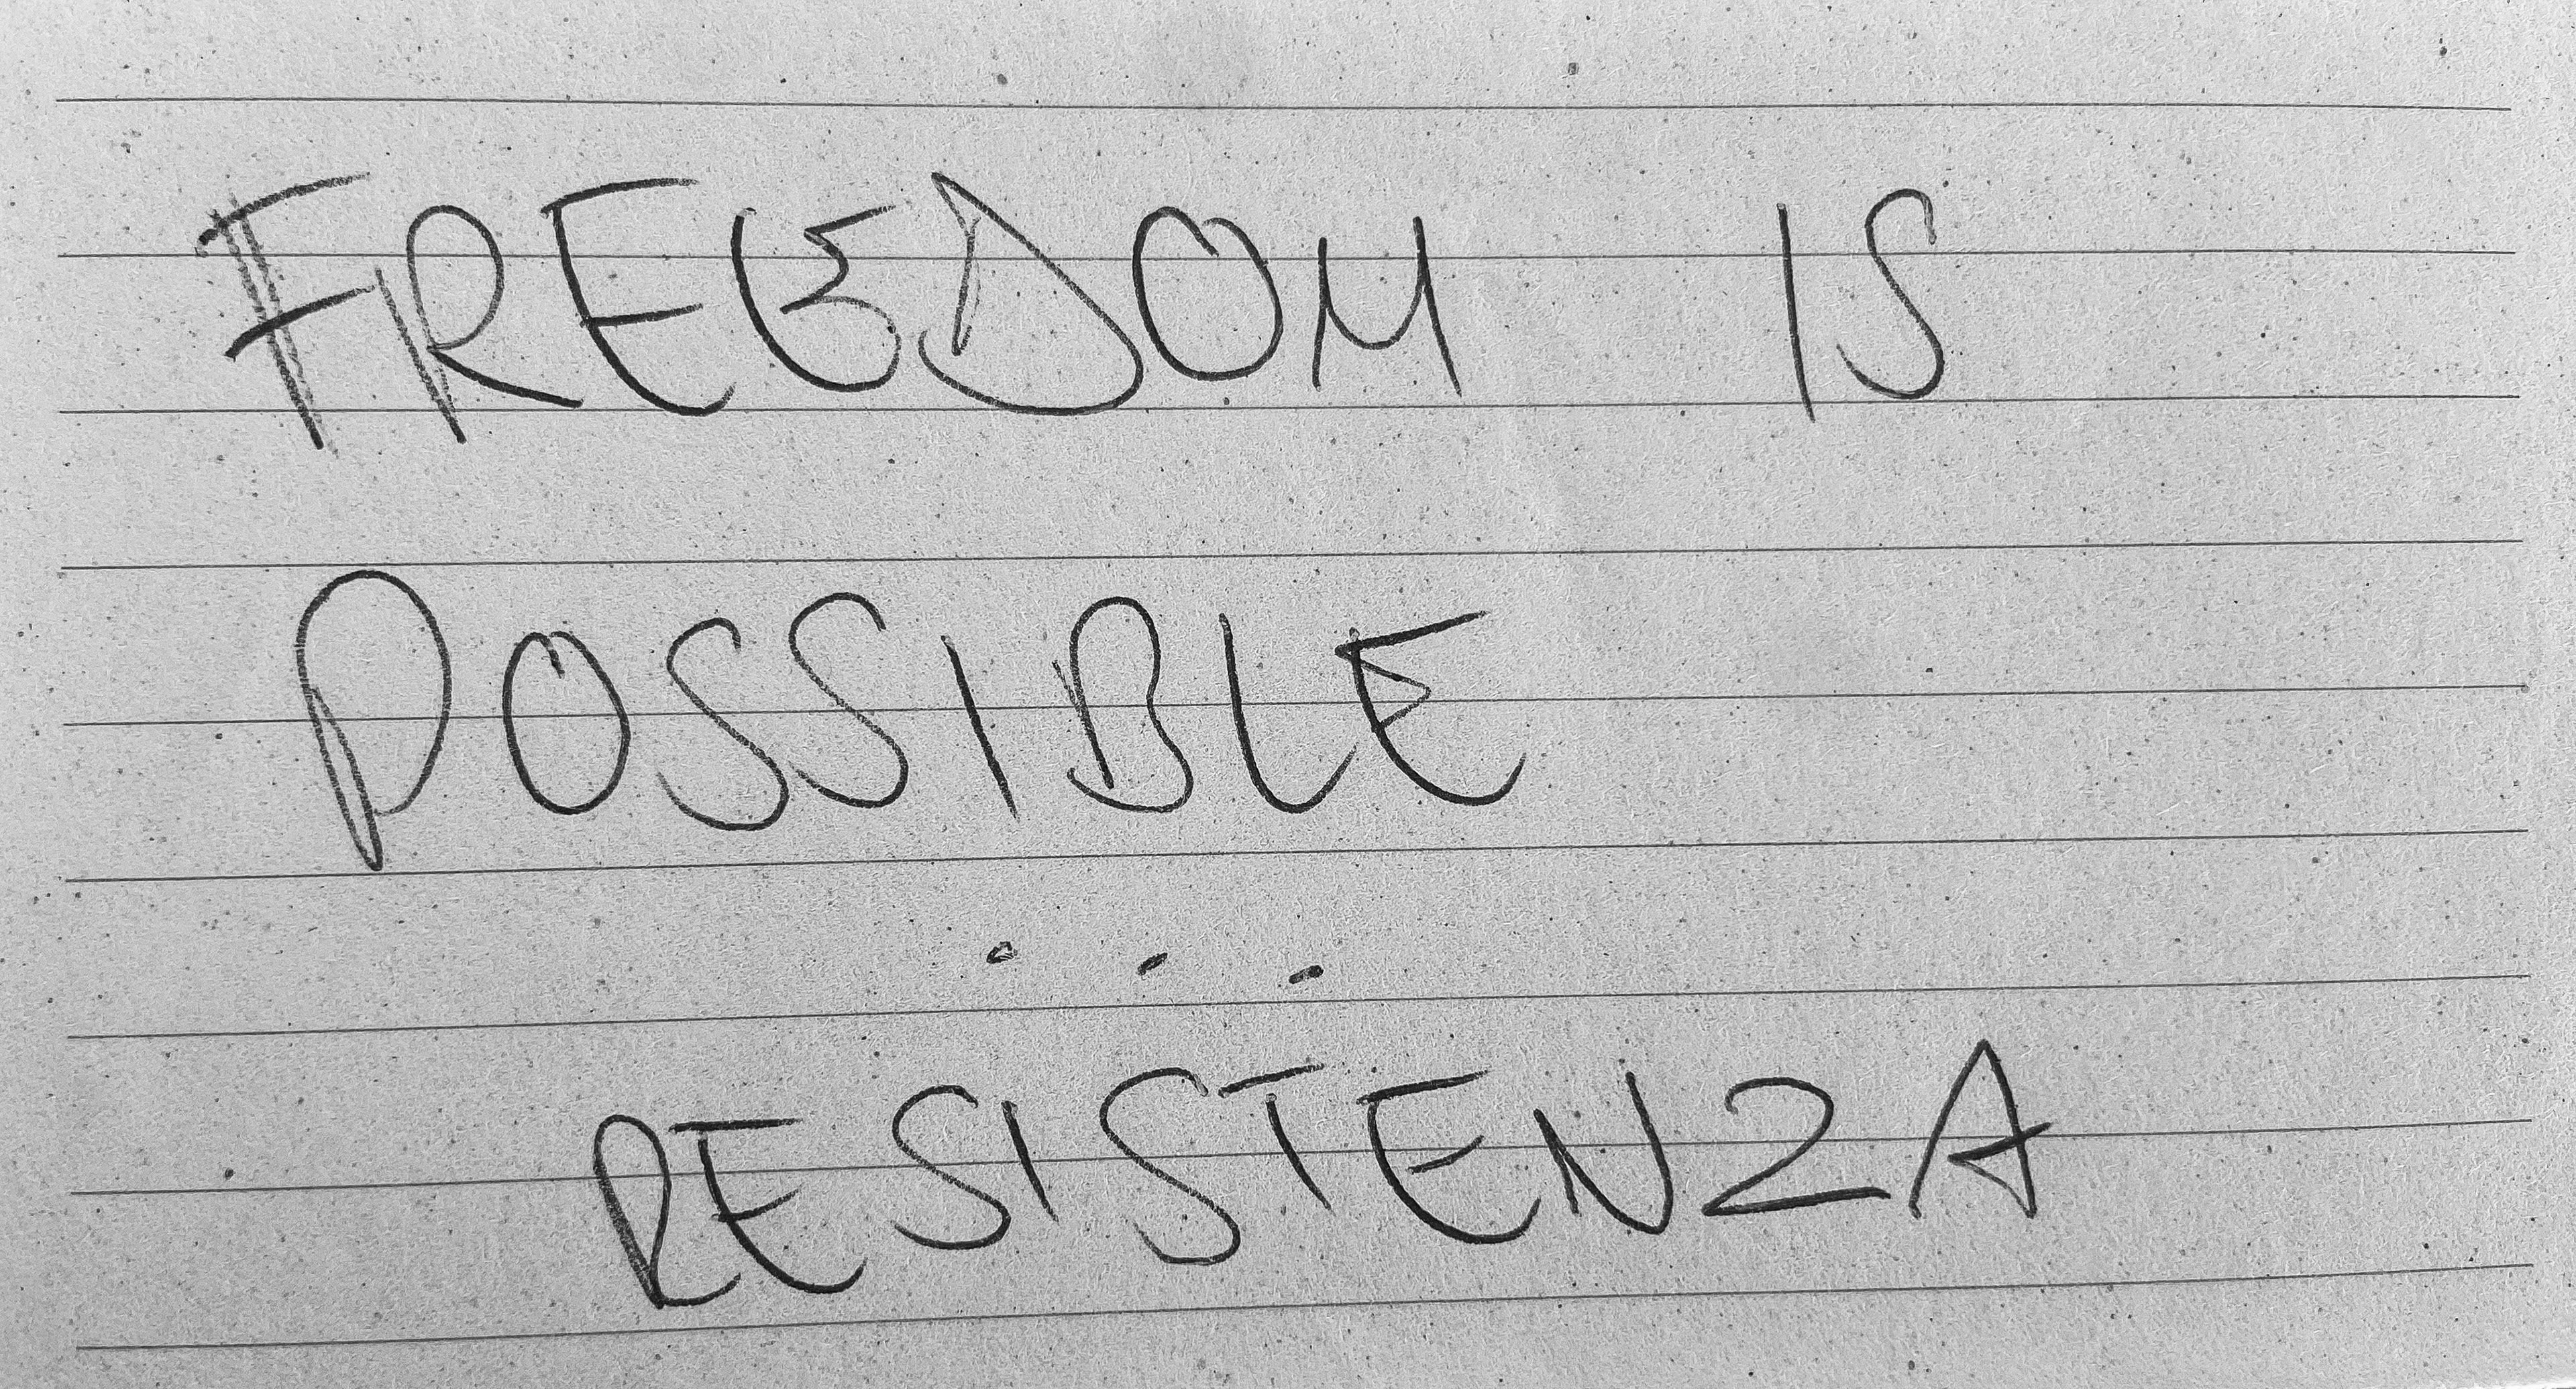 FREEDOM IS
POSSIBLE
...
RESISTENZA